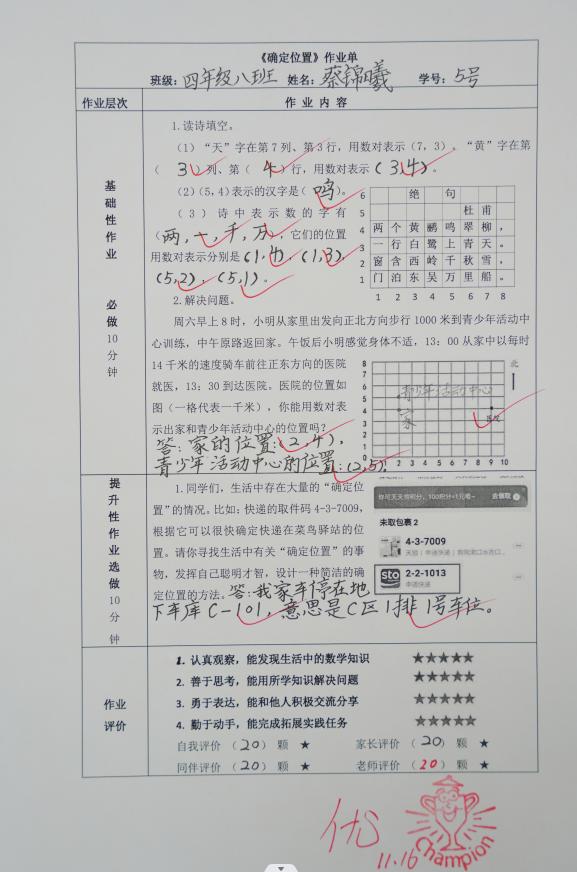 《确定位置》作业单
班级：四年级八班 姓名：蔡锦曦 学号：5号
作业层次 作 业 内 容
基础性作业
必做10分钟
1.读诗填空。
（1）“天”字在第7列、第3行，用数对表示（7，3）。“黄”字在第
（ 3 ）列、第（ 4 ）行，用数对表示（3,4）。
（2）（5,4）表示的汉字是（ 鸣 ）。
（3）诗中表示数的字有
（两，一，千，万），它们的位置
用数对表示分别是（1,4），（1,3），
（5,2），（5,1）。
6 绝 句
5 杜 甫
4 两 个 黄 鹂 鸣 翠 柳 ，
3 一 行 白 鹭 上 青 天 。
2 窗 含 西 岭 千 秋 雪 ，
1 门 泊 东 吴 万 里 船 。
1 2 3 4 5 6 7 8
2.解决问题。
周六早上8时，小明从家里出发向正北方向步行1000米到青少年活动中
心训练，中午原路返回家。午饭后小明感觉身体不适，13：00从家中以每时
14千米的速度骑车前往正东方向的医院
就医，13：30到达医院。医院的位置如
图（一格代表一千米），你能用数对表
示出家和青少年活动中心的位置吗？
答：家的位置：（2,4），
青少年活动中心的位置：（2,5）。
北
8
7
6
5
4
3
2
1
0 1 2 3 4 5 6 7 8 9 10
青少年活动中心
家
医院
提升性作业选做10分钟
1.同学们，生活中存在大量的“确定位
置”的情况。比如：快递的取件码4-3-7009，
根据它可以很快确定快递在菜鸟驿站的位
置。请你寻找生活中有关“确定位置”的事
物，发挥自己聪明才智，设计一种简洁的确
定位置的方法。答：我家车停在地
下车库C-101，意思是C区1排1号车位。
去领取
未取包裹 2
4-3-7009
sto
2-2-1013
申通快递
作业
评价
1. 认真观察，能发现生活中的数学知识 ★★★★★
2. 善于思考，能用所学知识解决问题 ★★★★★
3. 勇于表达，能和他人积极交流分享 ★★★★★
4. 勤于动手，能完成拓展实践任务 ★★★★★
自我评价（20）颗 ★ 家长评价（20）颗 ★
同伴评价（20）颗 ★ 老师评价（20）颗 ★
优
11.16
Champion